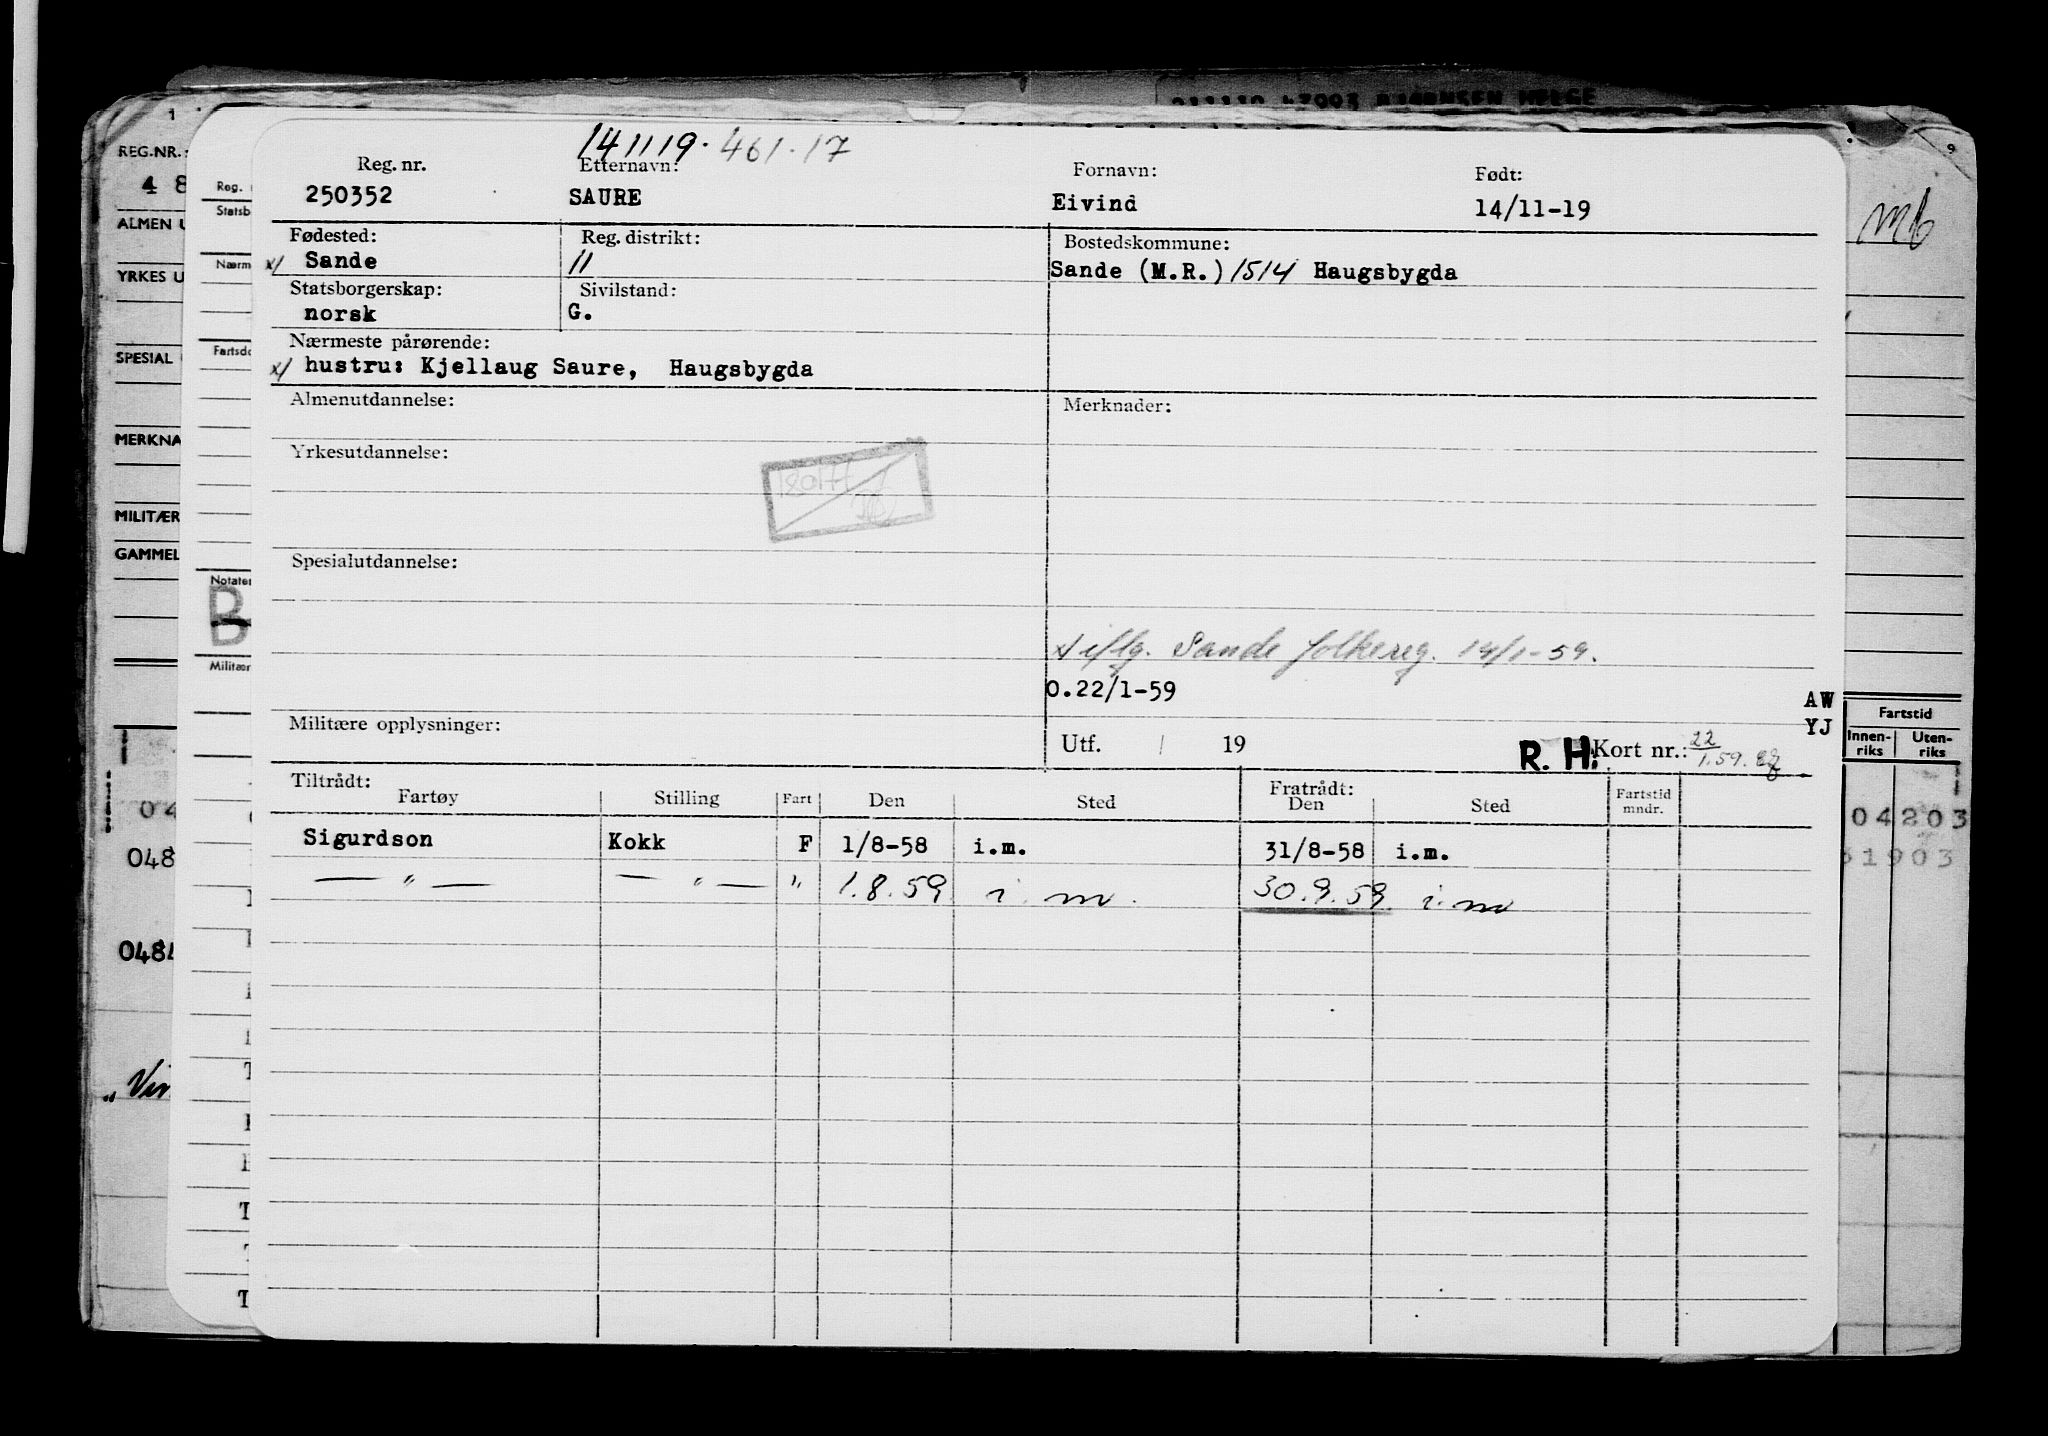 211119 47993 BJØRNSEN HELGE
1
9
REG.NR.:
4 8
ALMEN U
YRKES U
SPESIAL
MERKNA
MILITÆR
GAMMEL
Reg.
Statsb
Nærm
Fartsdo
Notater
B
Militær
048
"Vin
mb
Fartstid
Innen-
riks
Uten-
riks
04203
31903
141119. 461.17
Reg. nr. Etternavn: Fornavn: Født:
250352 SAURE Eivind 14/11-19
Fødested: Reg. distrikt: Bostedskommune:
x/ Sande 11 Sande (M.R.) 1514 Haugsbygda
Statsborgerskap: Sivilstand:
norsk G.
Nærmeste pårørende:
x/ hustru: Kjellaug Saure, Haugsbygda
Almenutdannelse: Merknader:
Yrkesutdannelse:
Spesialutdannelse:
x/ iflg. Sande folkereg. 14/1-59.
O.22/1-59
AW
YJ
Militære opplysninger:
Utf. / 19 R. H. Kort nr.: 22/1.59.
Tiltrådt: Fratrådt:
Fartøy Stilling Fart Den Sted Den Sted Fartstid mndr.
Sigurdson Kokk F 1/8-58 i.m. 31/8-58 i.m.
— " — — " — " 1.8.59 i.m. 30.9.59. i.m